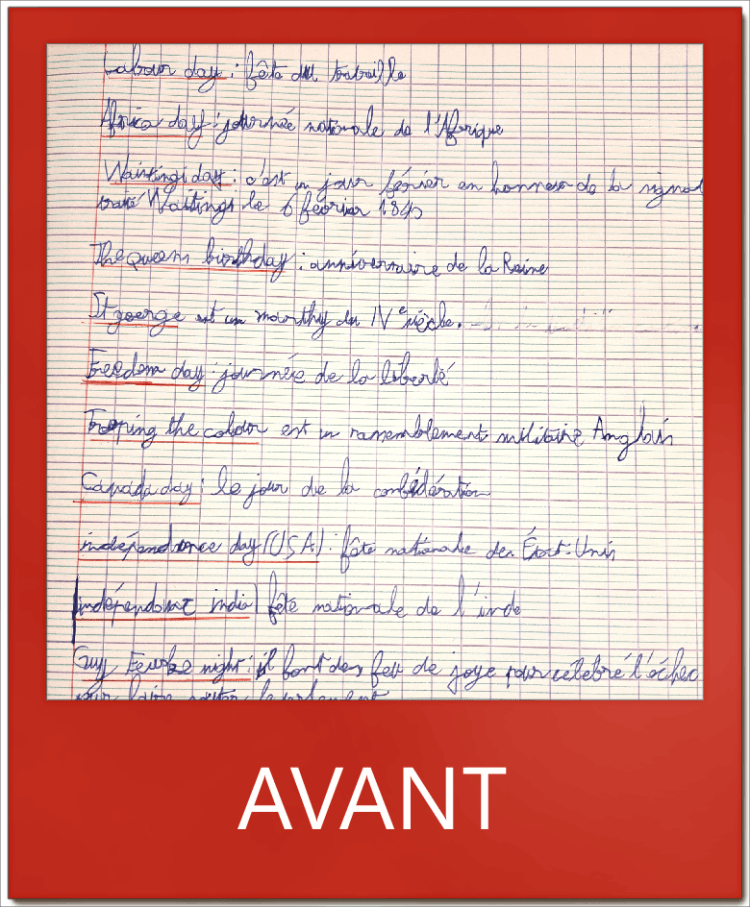 Labour day : fête du travaille
Africa day : journée nationale de l'Afrique
Waintingi day : c'est un jour férier en honneur de la signat
traité Waitingi le 6 février 1840
The queens birthday : anniversaire de la Reine
St goerge est un marthy du IVe siècle.
Freedom day : journée de la liberté
Trooping the colour est un rassemblement militaire Anglais
Canada day : le jour de la confédération
indépendance day (USA) : fête nationale des État-Unis
indépendant india fête nationale de l'inde
Guy Fawkes night : il font des feu de joye pour célebré l'échec
pour faire sauter le parlement
AVANT